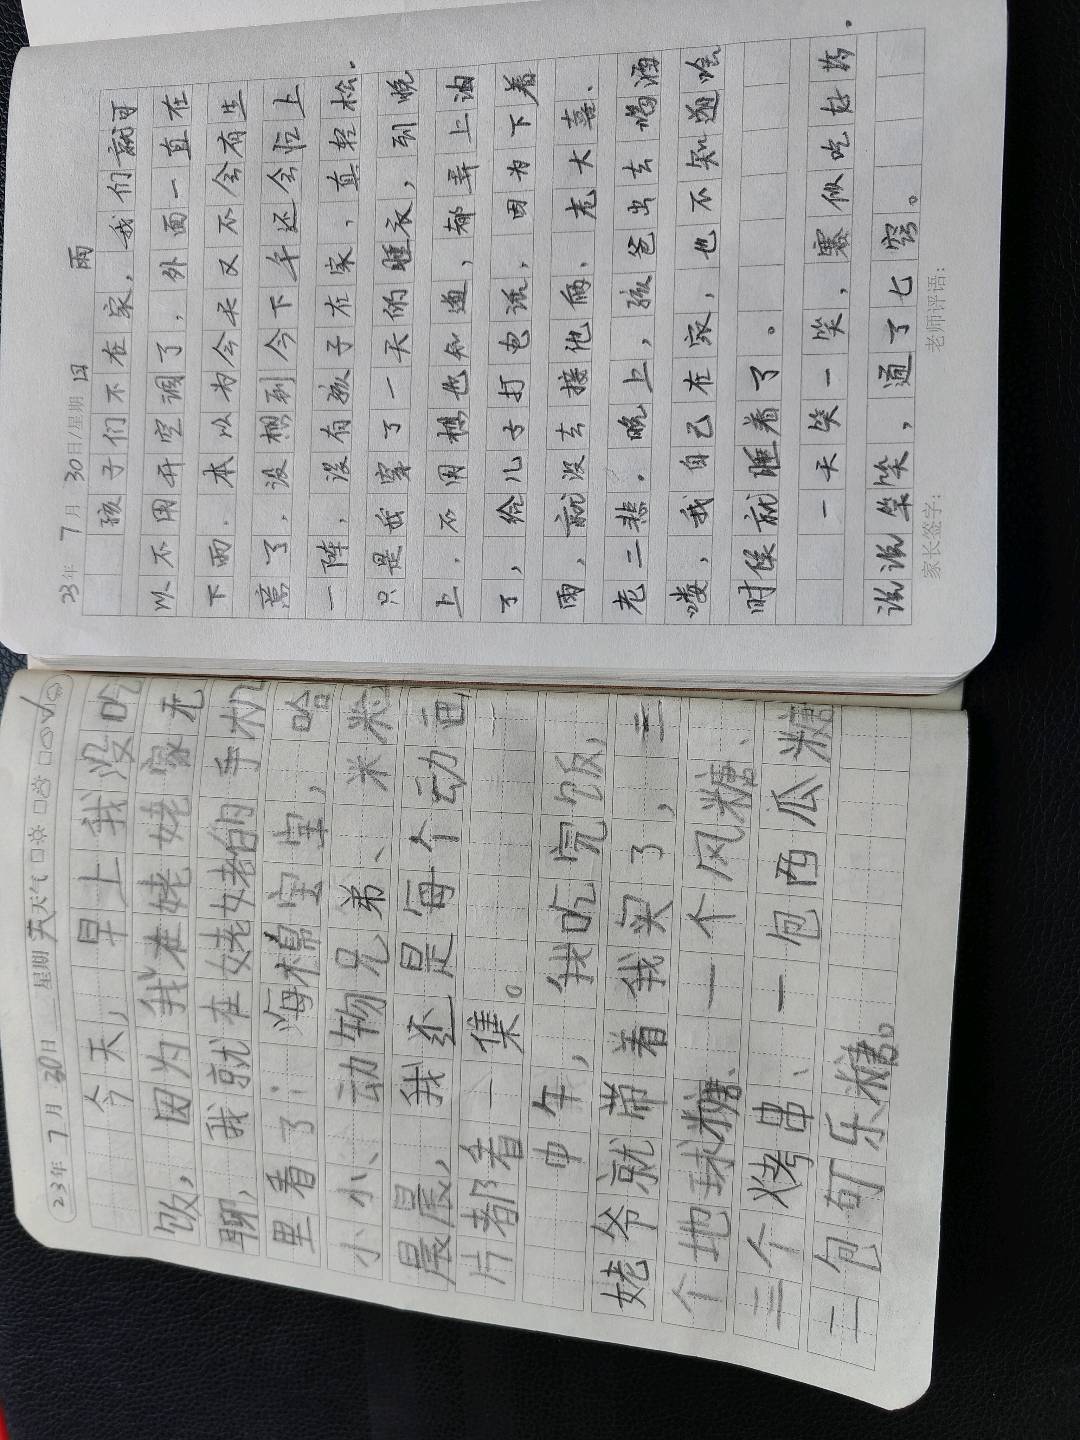 23年 7月 30日/星期 日 雨
孩子们不在家,我们就可
以不用开空调了,外面一直在
下雨.本以为今天又不会有生
意了,没想到今下午还会忙上
一阵,没有孩子在家,真轻松.
只是我穿了一天的睡衣,引晚
上.不用想也知道,都弄上油
了,给儿子打电话,因为下着
雨,就没去接他俩.老大喜、
老二悲.晚上,孩爸出去喝酒
喽,我自己在家,也不知道啥
时候就睡着了。
一天笑一笑,赛似吃好药.
说说笑笑,通了七窍。
家长签字: 老师评语:
23年 7月 30日 星期 天 天气
今天,早上我没吃
饭,因为我在姥姥家无
聊,我就在姥姥的手机
里看了:海棉宝宝,哈
小小、动物兄弟、米粒
晨晨,我还是每个动画
片都看一集。
中午,我吃完饭,
姥爷就带着我买了,三
个地球糖、一个风糖、
三个烤串、一包西瓜糖
二包可乐糖。